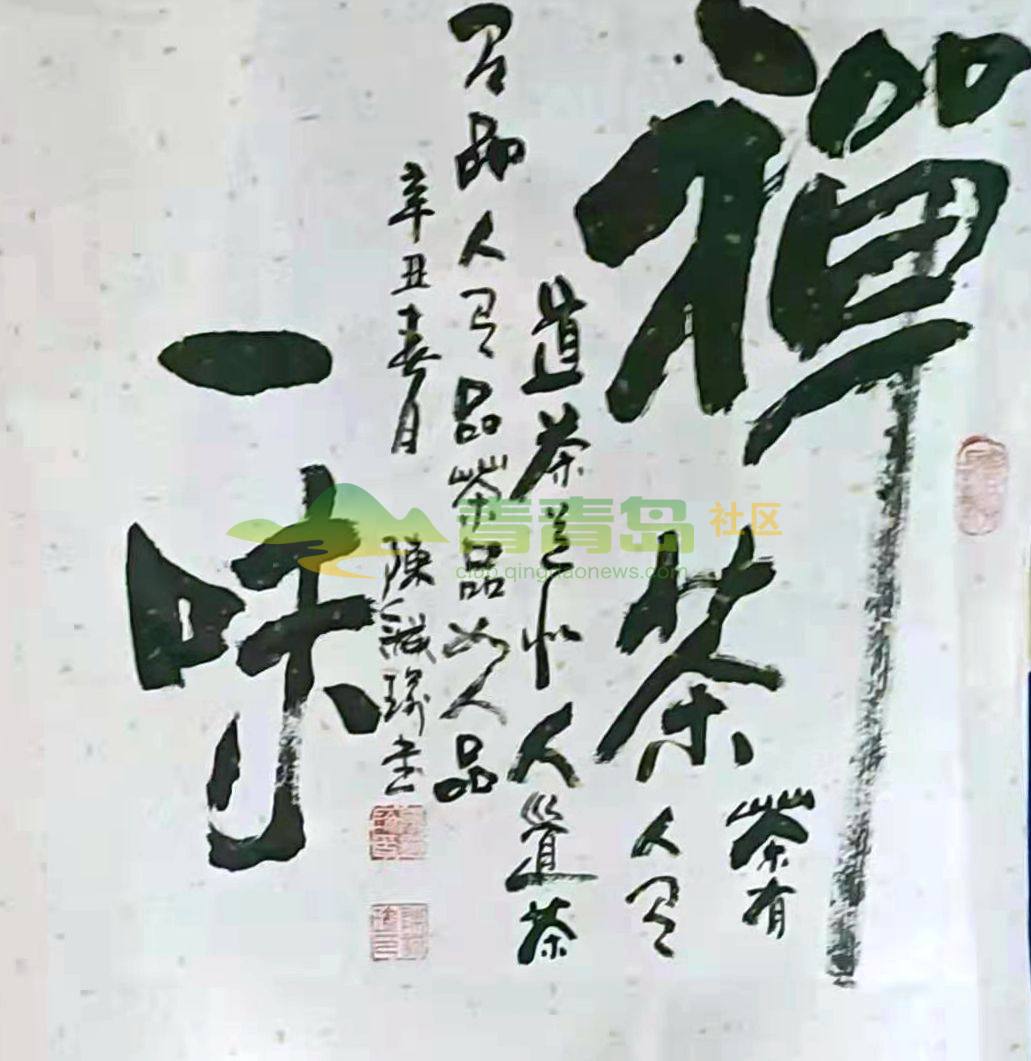 禪
茶
茶有
人有
道茶道似人道茶
有品人有品茶品如人品
辛丑春月
陳
書
一味
青青岛社区
club.qingdaonews.com